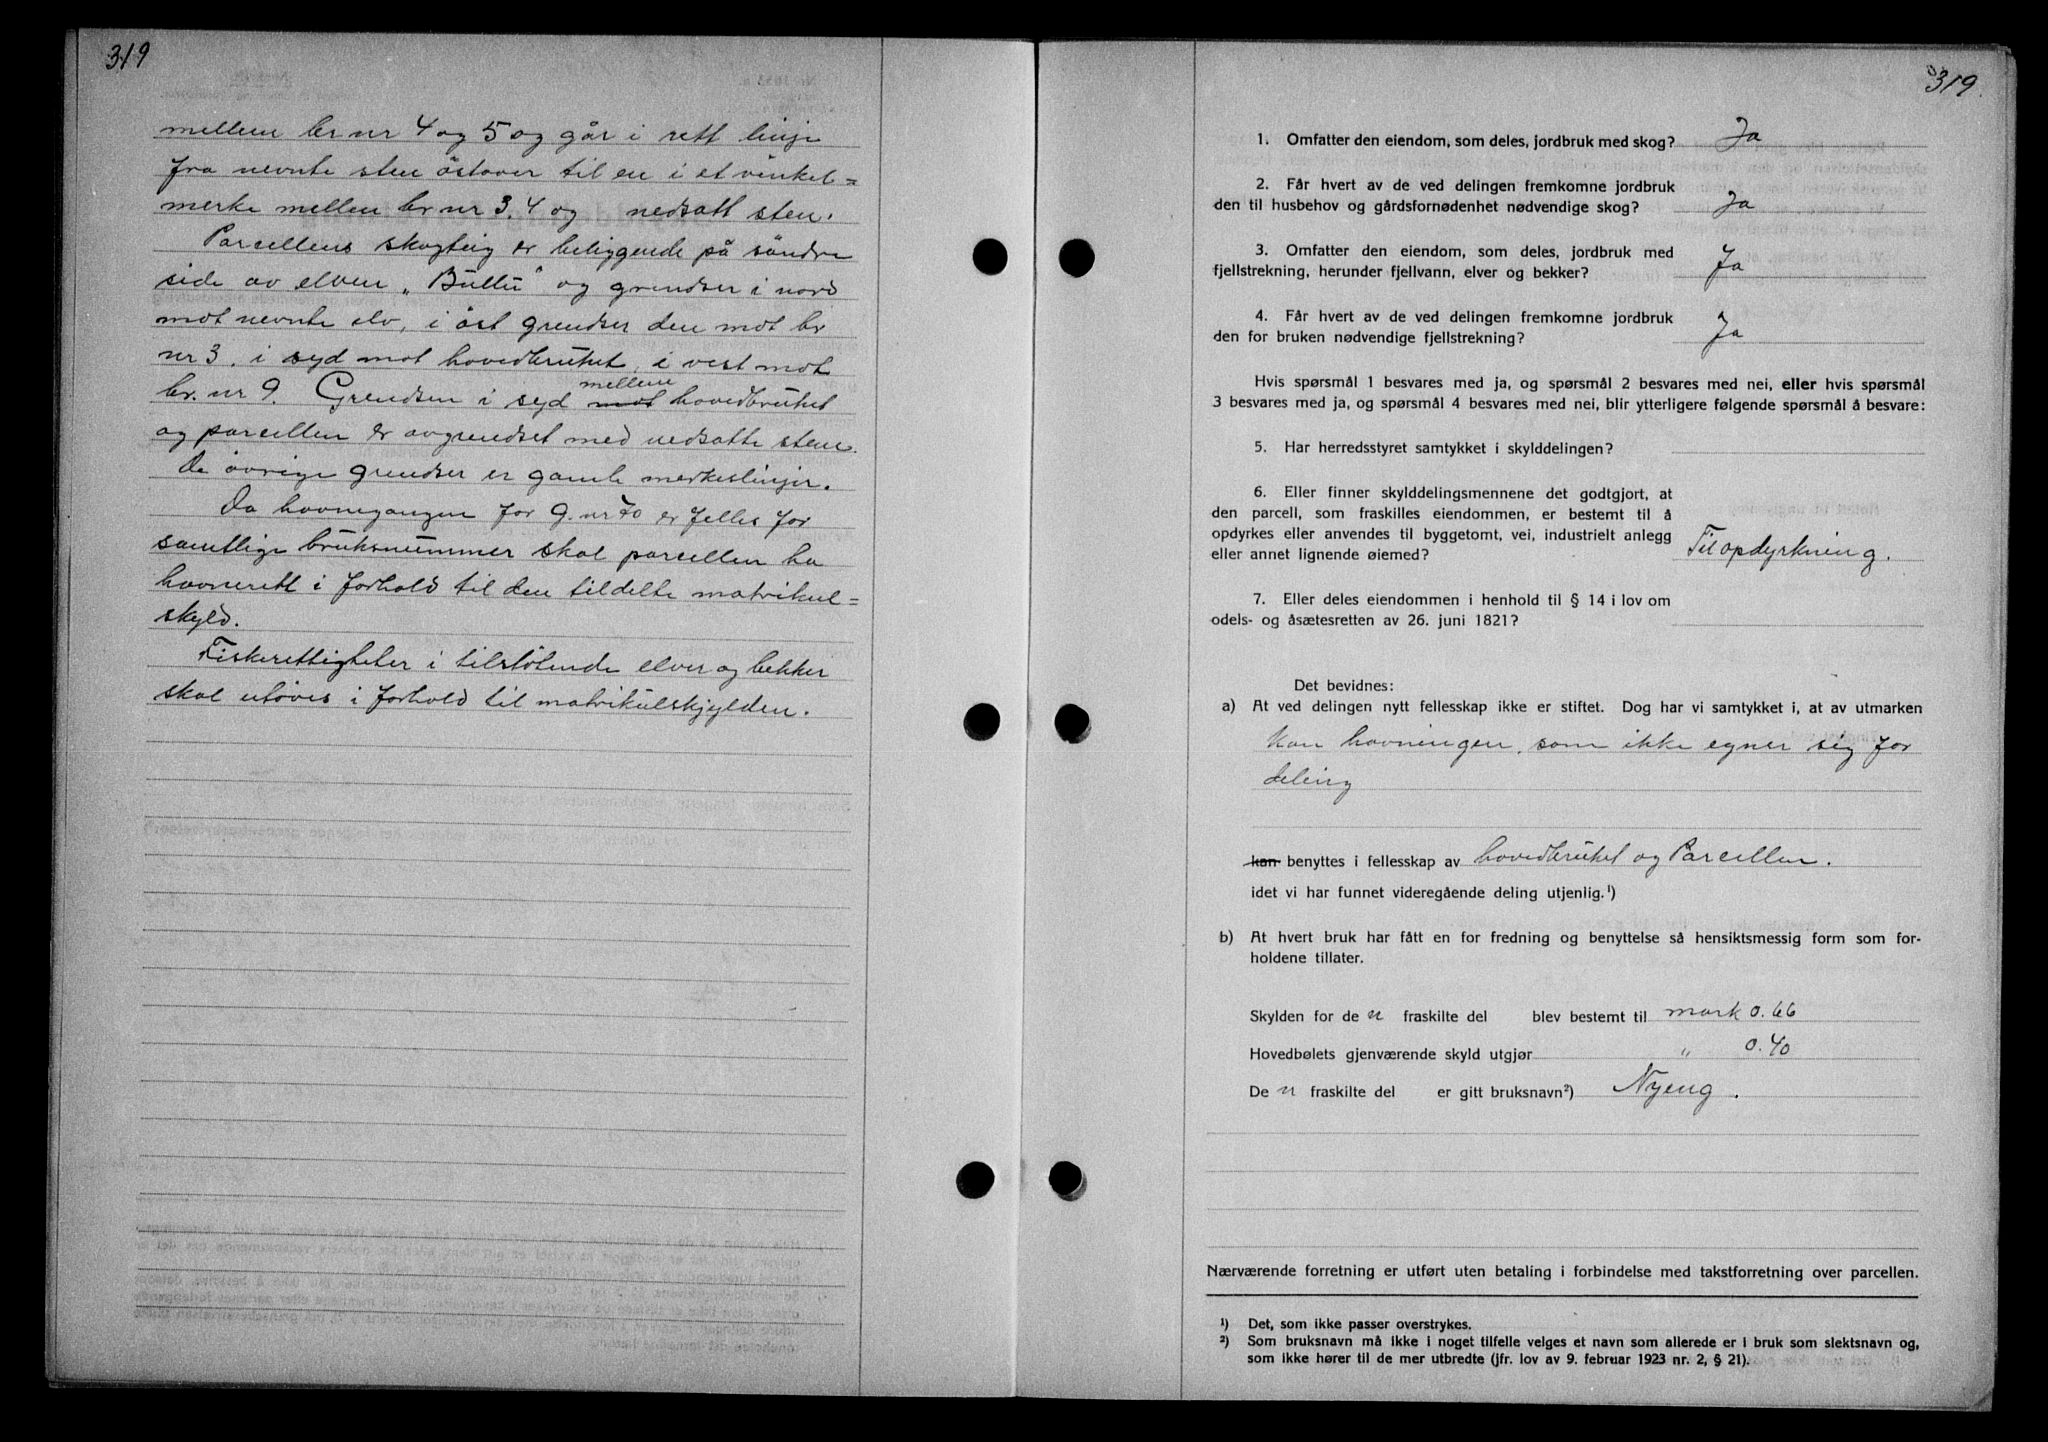 319
mellem br nr 4 og 5 og går i rett linje
fra nevnte sten östover til en i et vinkel=
merke mellem br nr 3, 4 og nedsatt sten.
Parcellens skogteig er beliggende på söndre
side av elven „Bullu" og grendser i nord
mot nevnte elv, i öst grendser den mot br
nr 3. i syd mot hovedbruket, i vest mot
br. nr 9. Grendsen i syd mot mellem hovedbruket
og parcellen er avgrendset med nedsatte sten.
De övrige grendser er gamle merkeslinjer.
Da havnegangen for g. nr 70 er felles for
samtlige bruksnummer skal parcellen ha
havnerett i forhold til den tildelte matrikul=
skyld.
Fiskerettigheter i tilstötende elver og bekker
skal utöves i forhold til matrikulskylden.
319.
1. Omfatter den eiendom, som deles, jordbruk med skog? Ja
2. Får hvert av de ved delingen fremkomne jordbruk
den til husbehov og gårdsfornødenhet nødvendige skog? Ja
3. Omfatter den eiendom, som deles, jordbruk med
fjellstrekning, herunder fjellvann, elver og bekker? Ja
4. Får hvert av de ved delingen fremkomne jordbruk
den for bruken nødvendige fjellstrekning? Ja
Hvis spørsmål 1 besvares med ja, og spørsmål 2 besvares med nei, eller hvis spørsmål
3 besvares med ja, og spørsmål 4 besvares med nei, blir ytterligere følgende spørsmål å besvare:
5. Har herredsstyret samtykket i skylddelingen?
6. Eller finner skylddelingsmennene det godtgjort, at
den parcell, som fraskilles eiendommen, er bestemt til å
opdyrkes eller anvendes til byggetomt, vei, industrielt anlegg
eller annet lignende øiemed? Til opdyrkning.
7. Eller deles eiendommen i henhold til § 14 i lov om
odels- og åsætesretten av 26. juni 1821?
Det bevidnes:
a) At ved delingen nytt fellesskap ikke er stiftet. Dog har vi samtykket i, at av utmarken
kan havningen, som ikke egner sig for
deling
kan benyttes i fellesskap av hovedbruket og Parcellen.
idet vi har funnet videregående deling utjenlig.¹)
b) At hvert bruk har fått en for fredning og benyttelse så hensiktsmessig form som for-
holdene tillater.
Skylden for de n fraskilte del blev bestemt til mark 0.66
Hovedbølets gjenværende skyld utgjør „ 0.40
De n fraskilte del er gitt bruksnavn²) Nyeng.
Nærværende forretning er utført uten betaling i forbindelse med takstforretning over parcellen.
¹) Det, som ikke passer overstrykes.
²) Som bruksnavn må ikke i noget tilfelle velges et navn som allerede er i bruk som slektsnavn og,
som ikke hører til de mer utbredte (jfr. lov av 9. februar 1923 nr. 2, § 21).